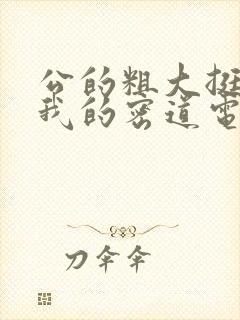 公的粗大挺
我的密道电
刀伞伞